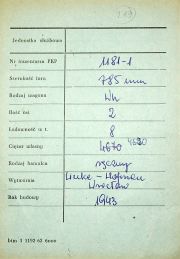 Jednostka służbowa
Nr inwentarza PKP 1181-1
Szerokość toru 785 mm
Rodzaj wagonu Wk
Ilość osi 2
Ładowność w t. 8
Ciężar własny 4670 4630
Rodzaj hamulca ręczny
Wytwórnia Linke-Hofman
Wrocław
Rok budowy 1943